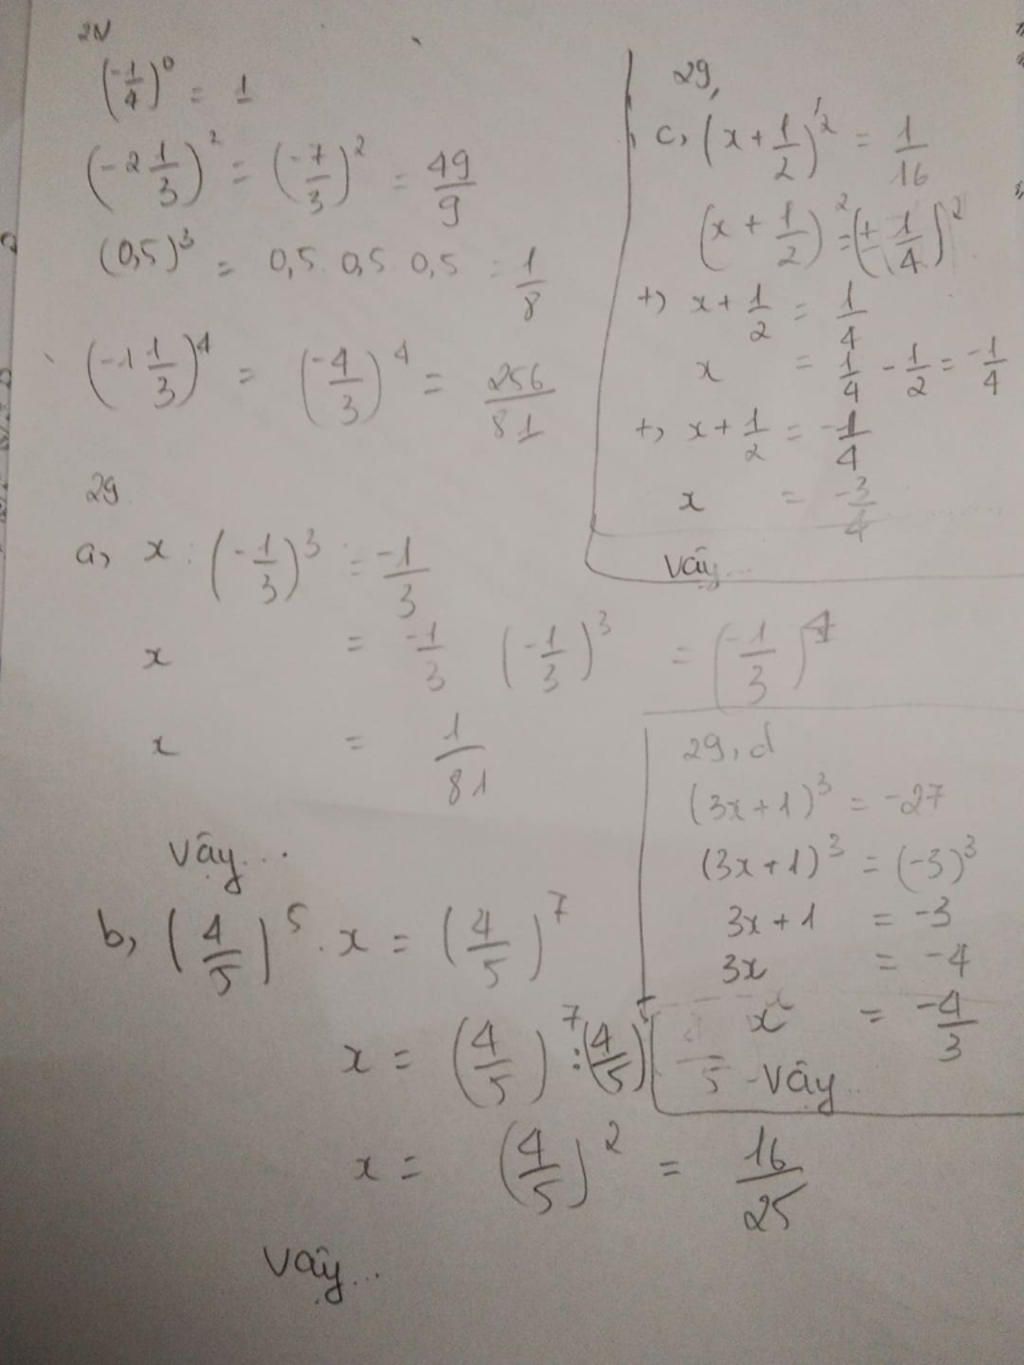 (-1/4)^0 = 1
(-2 1/3)^2 = (-7/3)^2 = 49/9
(0,5)^3 = 0,5 0,5 0,5 = 1/8
(-1 1/3)^4 = (-4/3)^4 = 256/81
29
a, x : (-1/3)^3 = -1/3
x = -1/3 (-1/3)^3 = (-1/3)^4
x = 1/81
Vậy...
b, (4/5)^5 . x = (4/5)^7
x = (4/5)^7 : (4/5)^5
x = (4/5)^2 = 16/25
Vậy...
29,
c, (x + 1/2)^2 = 1/16
(x + 1/2)^2 = (± 1/4)^2
+, x + 1/2 = 1/4
x = 1/4 - 1/2 = -1/4
+, x + 1/2 = -1/4
x = -3/4
Vậy...
29, d
(3x+1)^3 = -27
(3x+1)^3 = (-3)^3
3x+1 = -3
3x = -4
x = -4/3
-Vậy..